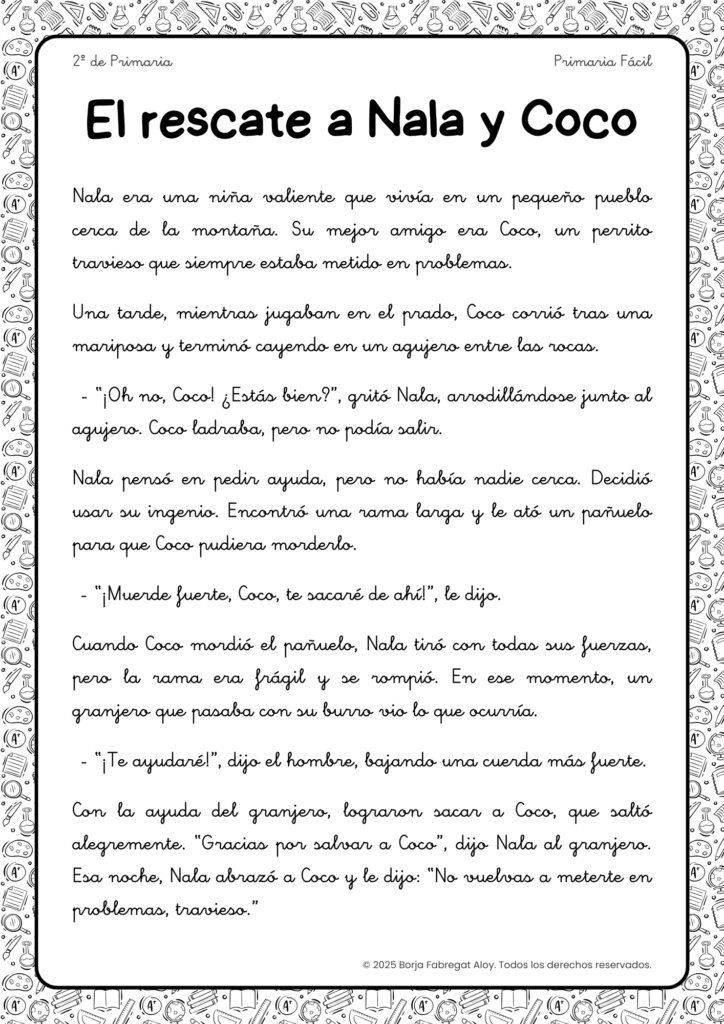 2º de Primaria
Primaria Fácil
El rescate a Nala y Coco
Nala era una niña valiente que vivía en un pequeño pueblo
cerca de la montaña. Su mejor amigo era Coco, un perrito
travieso que siempre estaba metido en problemas.
Una tarde, mientras jugaban en el prado, Coco corrió tras una
mariposa y terminó cayendo en un agujero entre las rocas.
- "¡Oh no, Coco! ¿Estás bien?", gritó Nala, arrodillándose junto al
agujero. Coco ladraba, pero no podía salir.
Nala pensó en pedir ayuda, pero no había nadie cerca. Decidió
usar su ingenio. Encontró una rama larga y le ató un pañuelo
para que Coco pudiera morderlo.
- "¡Muerde fuerte, Coco, te sacaré de ahí!", le dijo.
Cuando Coco mordió el pañuelo, Nala tiró con todas sus fuerzas,
pero la rama era frágil y se rompió. En ese momento, un
granjero que pasaba con su burro vio lo que ocurría.
- "¡Te ayudaré!", dijo el hombre, bajando una cuerda más fuerte.
Con la ayuda del granjero, lograron sacar a Coco, que saltó
alegremente. "Gracias por salvar a Coco", dijo Nala al granjero.
Esa noche, Nala abrazó a Coco y le dijo: "No vuelvas a meterte en
problemas, travieso."
© 2025 Borja Fabregat Aloy. Todos los derechos reservados.